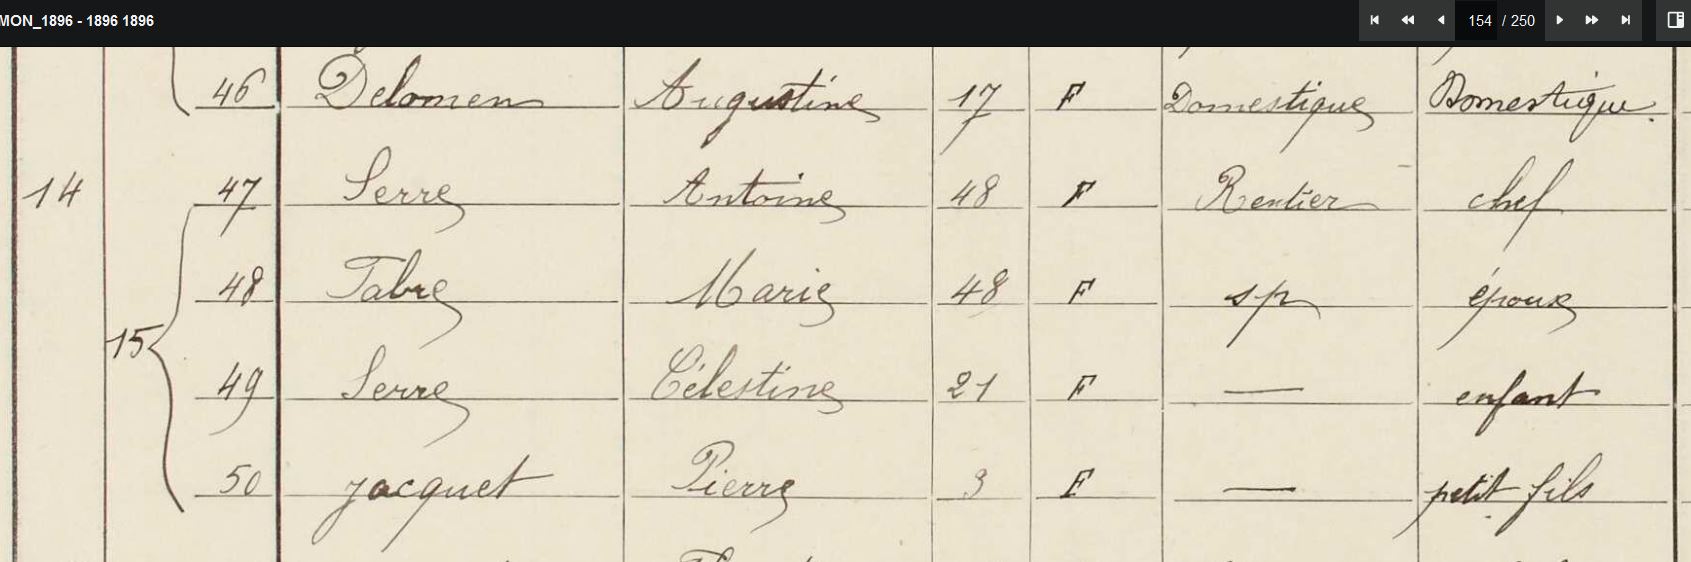 MON_1896 - 1896 1896 154 / 250
46 Delomen Augustine 17 F Domestique Domestique.
14 47 Serre Antoine 48 F Rentier chef
48 Fabre Marie 48 F sp époux
15
49 Serre Célestine 21 F — enfant
50 jacquet Pierre 3 F — petit fils